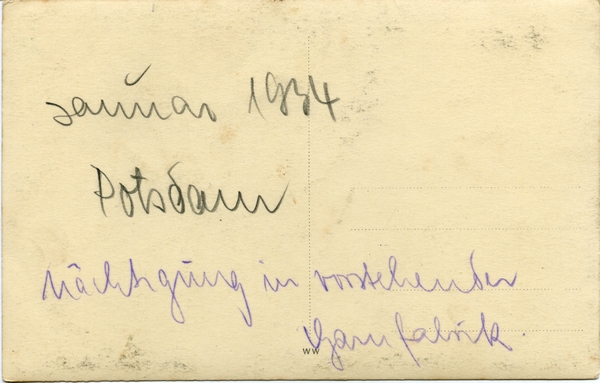 Januar 1934
Potsdam
Nächtigung in vorstehender
Garnfabrik.
WW